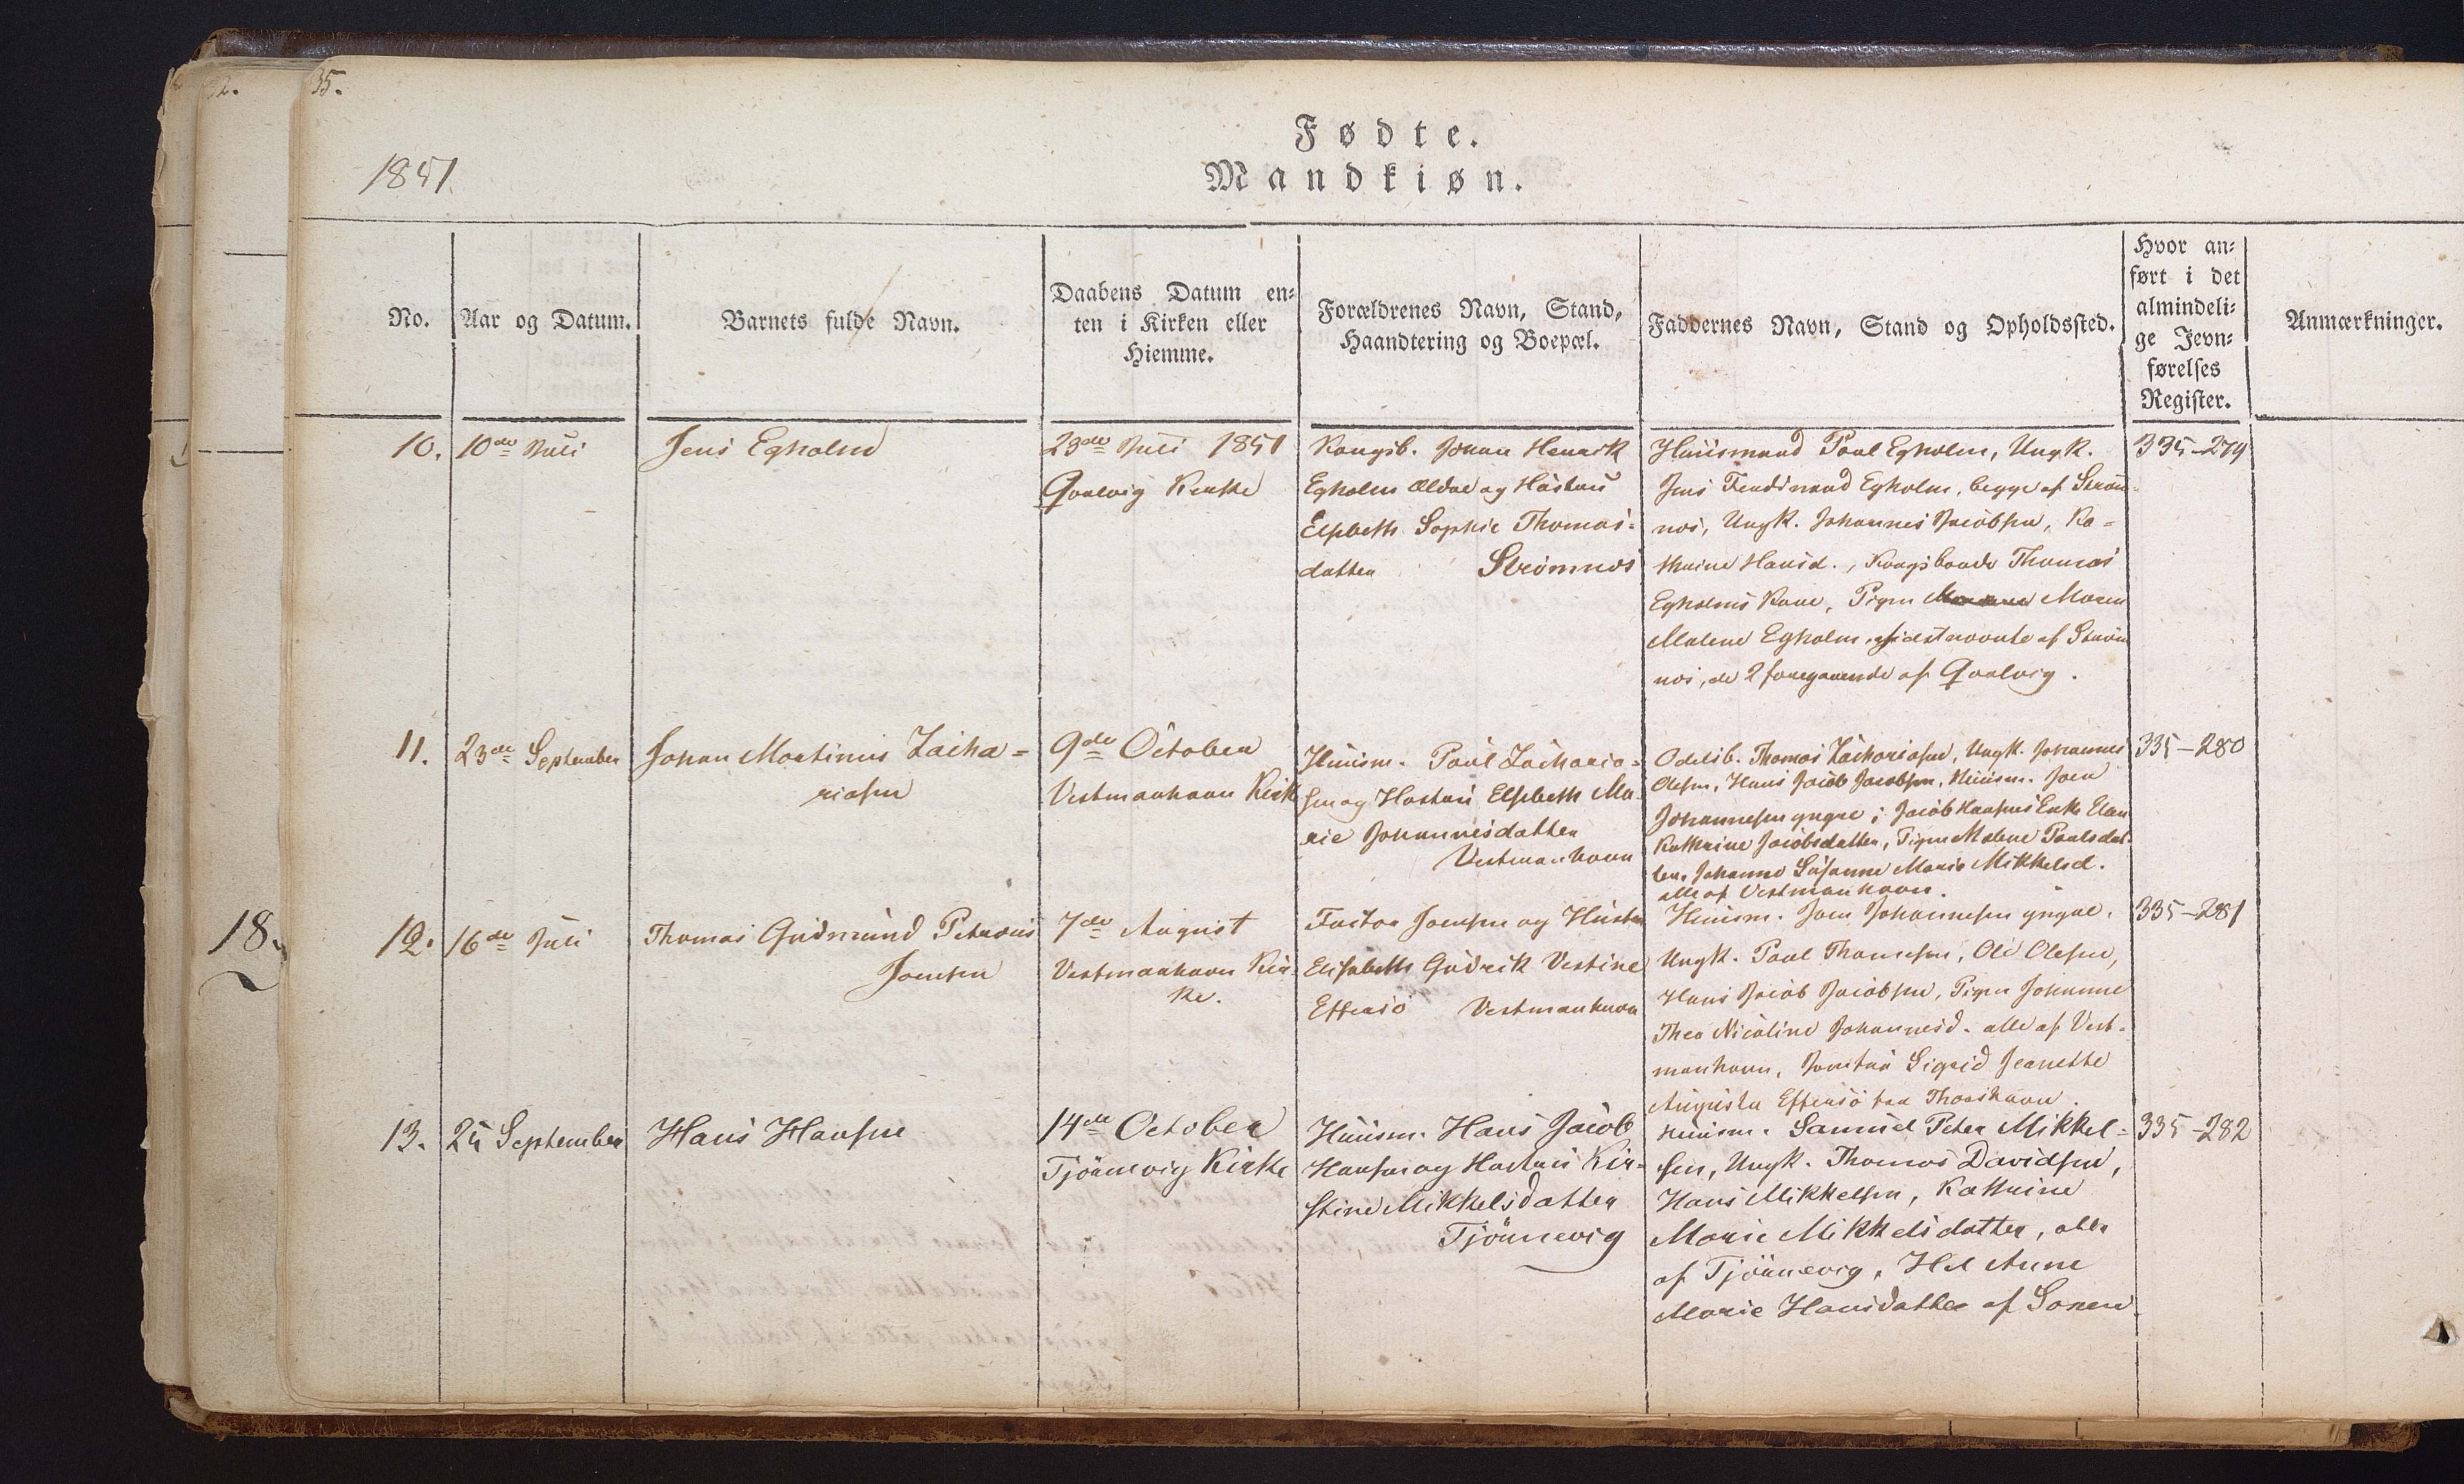 35.
1851
Fødte.
Mandkiøn.
No.
Aar og Datum.
Barnets fulde Navn.
Daabens Datum en-
ten i Kirken eller
Hiemme.
Forældrenes Navn, Stand,
Haandtering og Boepæl.
Faddernes Navn, Stand og Opholdssted.
Hvor an-
ført i det
almindeli-
ge Jevn-
førelses
Register.
Anmærkninger.
10.
10de Juli
Jens Egholm
23de Juli 1851
Qvalvig Kirke
Kongsb. Johan Henrik
Egholm ældre og Hustru
Elsbeth Sophie Thomas-
datter Strømnes
Huusmand Poul Egholm, Ungk.
Jens Ferdinand Egholm, begge af Strøm-
nes, Ungk. Johannes Jacobsen, Ka-
thrine Hansd., Kongsbonde Thomas
Egholms Kone, Pigen Maren
Malene Egholm, sidstnævnte af Strøm
nes, de 2 foregaaende af Qvalvig.
335-279
11.
23de September
Johan Martinus Zacha-
riasen
9de October
Vestmanhavn Kirk
Huusm. Poul Zacharia-
sen og Hustru Elsebeth Ma-
rie Johannesdatter
Vestmanhavn
Odelsb. Thomas Zachariasen, Ungk. Johannes
Olesen, Hans Jacob Jacobsen, Huusm. Joen
Johannesen yngre; Jacob Hansens Enke Elen
Kathrine Jacobsdatter, Pigen Malene Poulsdat-
ter, Johanne Susanne Marie Mikkelsd.
alle af Vestmanhavn.
335-280
18.
12.
16de Juli
Thomas Gudmund Petræus
Joensen
7de August
Vestmanhavn Kir-
ke.
Factor Joensen og Hustru
Elisabeth Gudrik Vestine
Effersö Vestmanhavn
Huusm. Joen Johannesen yngre,
Ungk. Poul Thomesen, Ole Olesen,
Hans Jacob Jacobsen, Pigen Johanne
Thea Nicoline Johannesd. alle af Vest-
manhavn, Jomfru Sigrid Jeanette
Augusta Effersö fra Thorshavn.
335-281
13.
25 September
Hans Hansen
14de October
Tjörnevig Kirke
Huusm. Hans Jacob
Hansen og Hustru Kir-
stine Mikkelsdatter
Tjörnevig
Huusm. Samuel Peter Mikkel-
sen, Ungk. Thomas Davidsen,
Hans Mikkelsen, Kathrine
Marie Mikkelsdatter, alle
af Tjörnevig, Hel Anne
Marie Hansdatter af Saxen.
335-282